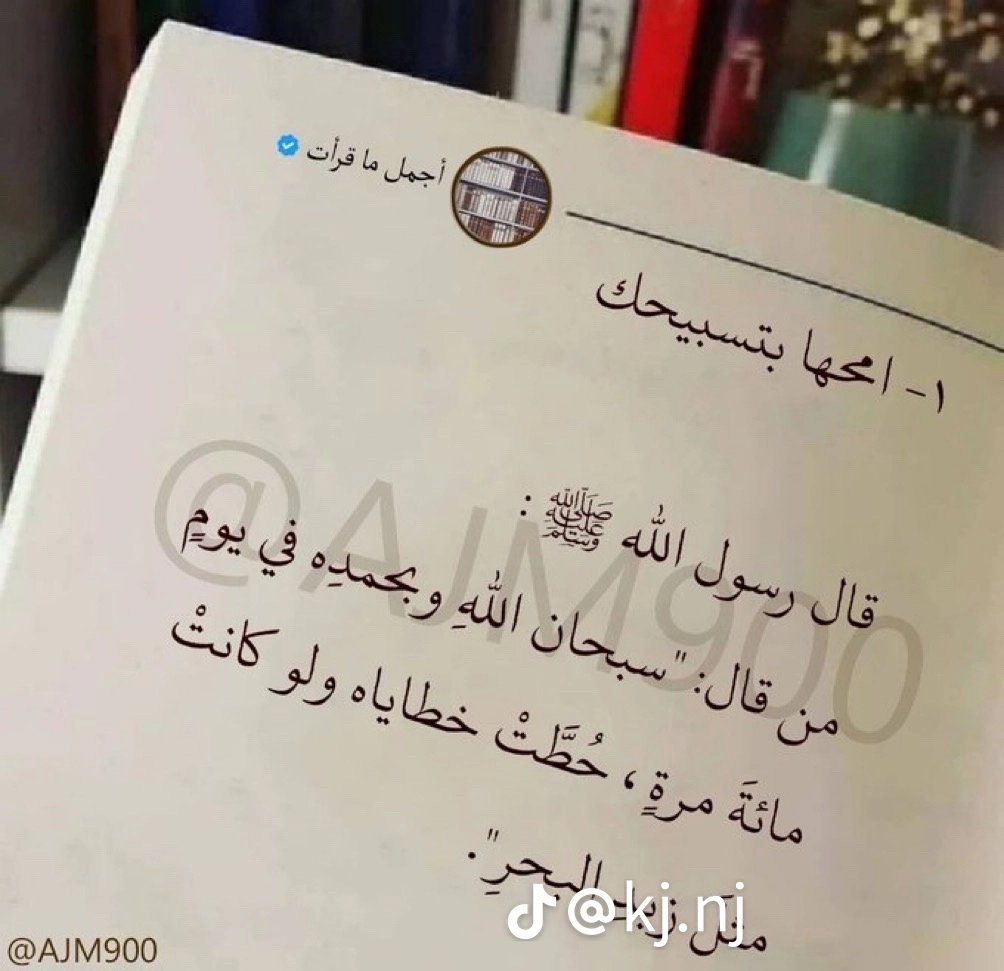 أجمل ما قرأت
١- امحها بتسبيحك
قال رسول الله ﷺ :
من قال: "سبحان اللهِ وبحمدِه في يومٍ
مائةَ مرةٍ، حُطَّتْ خطاياه ولو كانتْ
مثلَ زبدِ البحرِ".
@AJM900
@kj.nj
@AJM900